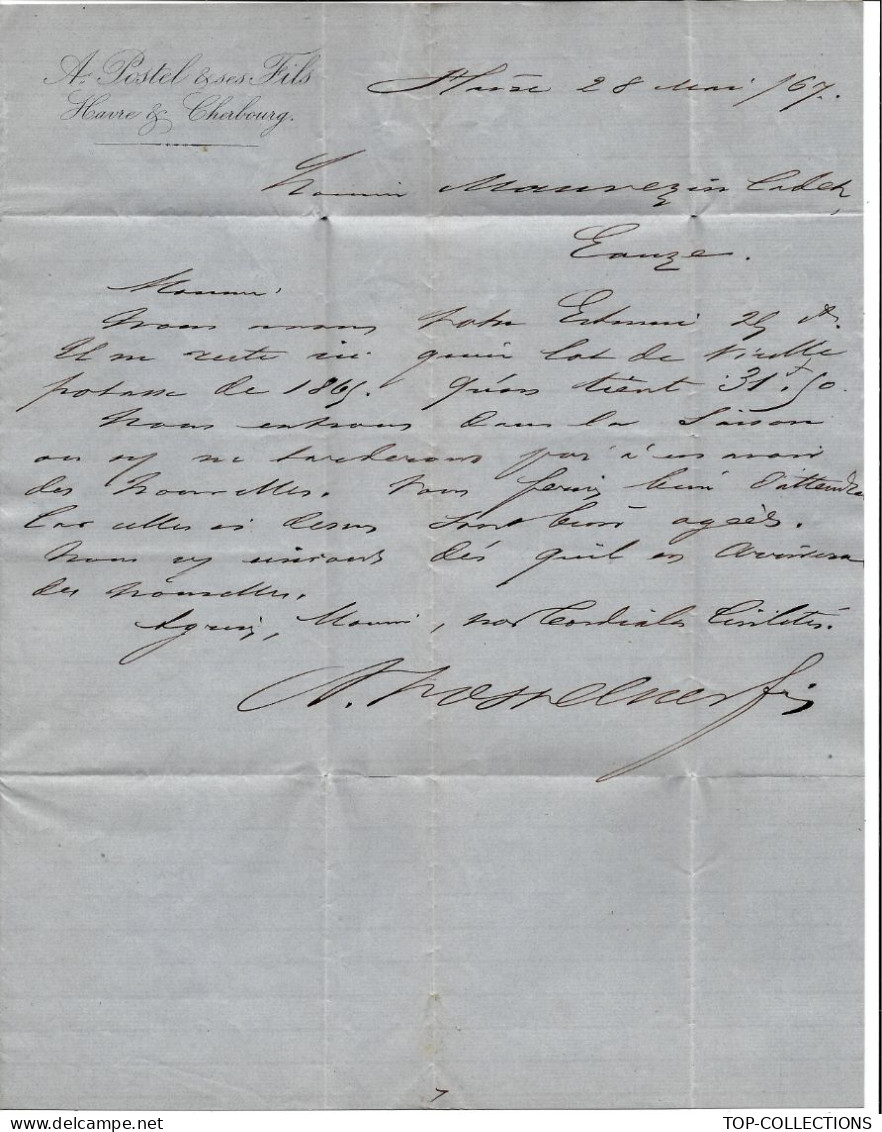 A. Postel & ses Fils
Havre & Cherbourg.
Havre 28 Mai /67.
Monsieur Mauvezin Cadet,
Eauze.
Monsieur
Nous avons votre Estimée 25 Ct.
Il ne reste ici qu'un lot de vieille
potasse de 1865. qu'on tient 31f.50
Nous entrons dans la Saison
ou ne tarderons pas à en avoir
des Nouvelles. Vous ferez bien d'attendre
Car celles ci dessus sont bien agées.
Nous dès qu'il en arrivera
des nouvelles.
Agréez, Monsieur, nos Cordiales Civilités.
A. Postel & ses fils
TOP-COLLECTIONS